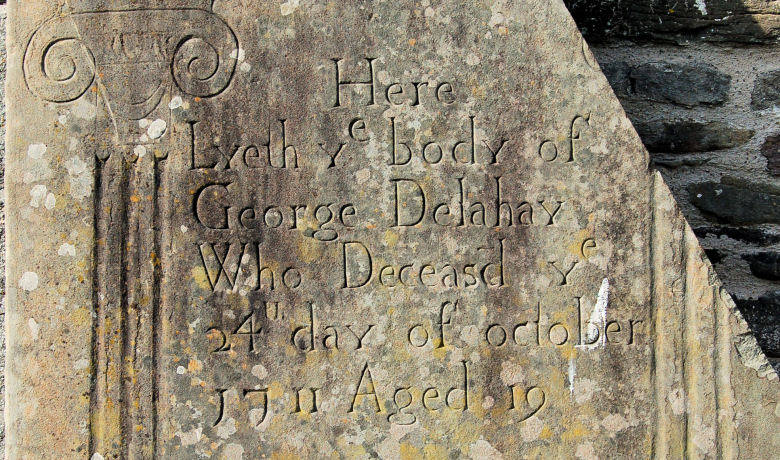 Here
Lyeth yᵉ body of
George Delahay
Who Deceasd yᵉ
24ᵗʰ day of october
1711 Aged 19